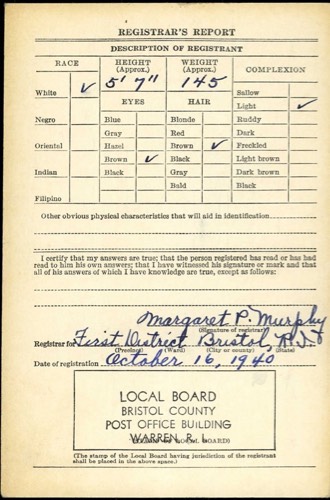 REGISTRAR'S REPORT
DESCRIPTION OF REGISTRANT
RACE HEIGHT (Approx.) WEIGHT (Approx.) COMPLEXION
5' 7" 145
White ✓ Sallow
EYES HAIR Light ✓
Negro Blue Blonde Ruddy
Gray Red Dark
Oriental Hazel Brown ✓ Freckled
Brown ✓ Black Light brown
Indian Black Gray Dark brown
Bald Black
Filipino
Other obvious physical characteristics that will aid in identification
I certify that my answers are true; that the person registered has read or has had
read to him his own answers; that I have witnessed his signature or mark and that
all of his answers of which I have knowledge are true, except as follows:
Margaret P. Murphy
(Signature of registrar)
Registrar for First District Bristol, R.I.
(Precinct) (Ward) (City or county) (State)
Date of registration October 16, 1940
LOCAL BOARD
BRISTOL COUNTY
POST OFFICE BUILDING
WARREN, R. I.
(STAMP OF LOCAL BOARD)
(The stamp of the Local Board having jurisdiction of the registrant
shall be placed in the above space.)